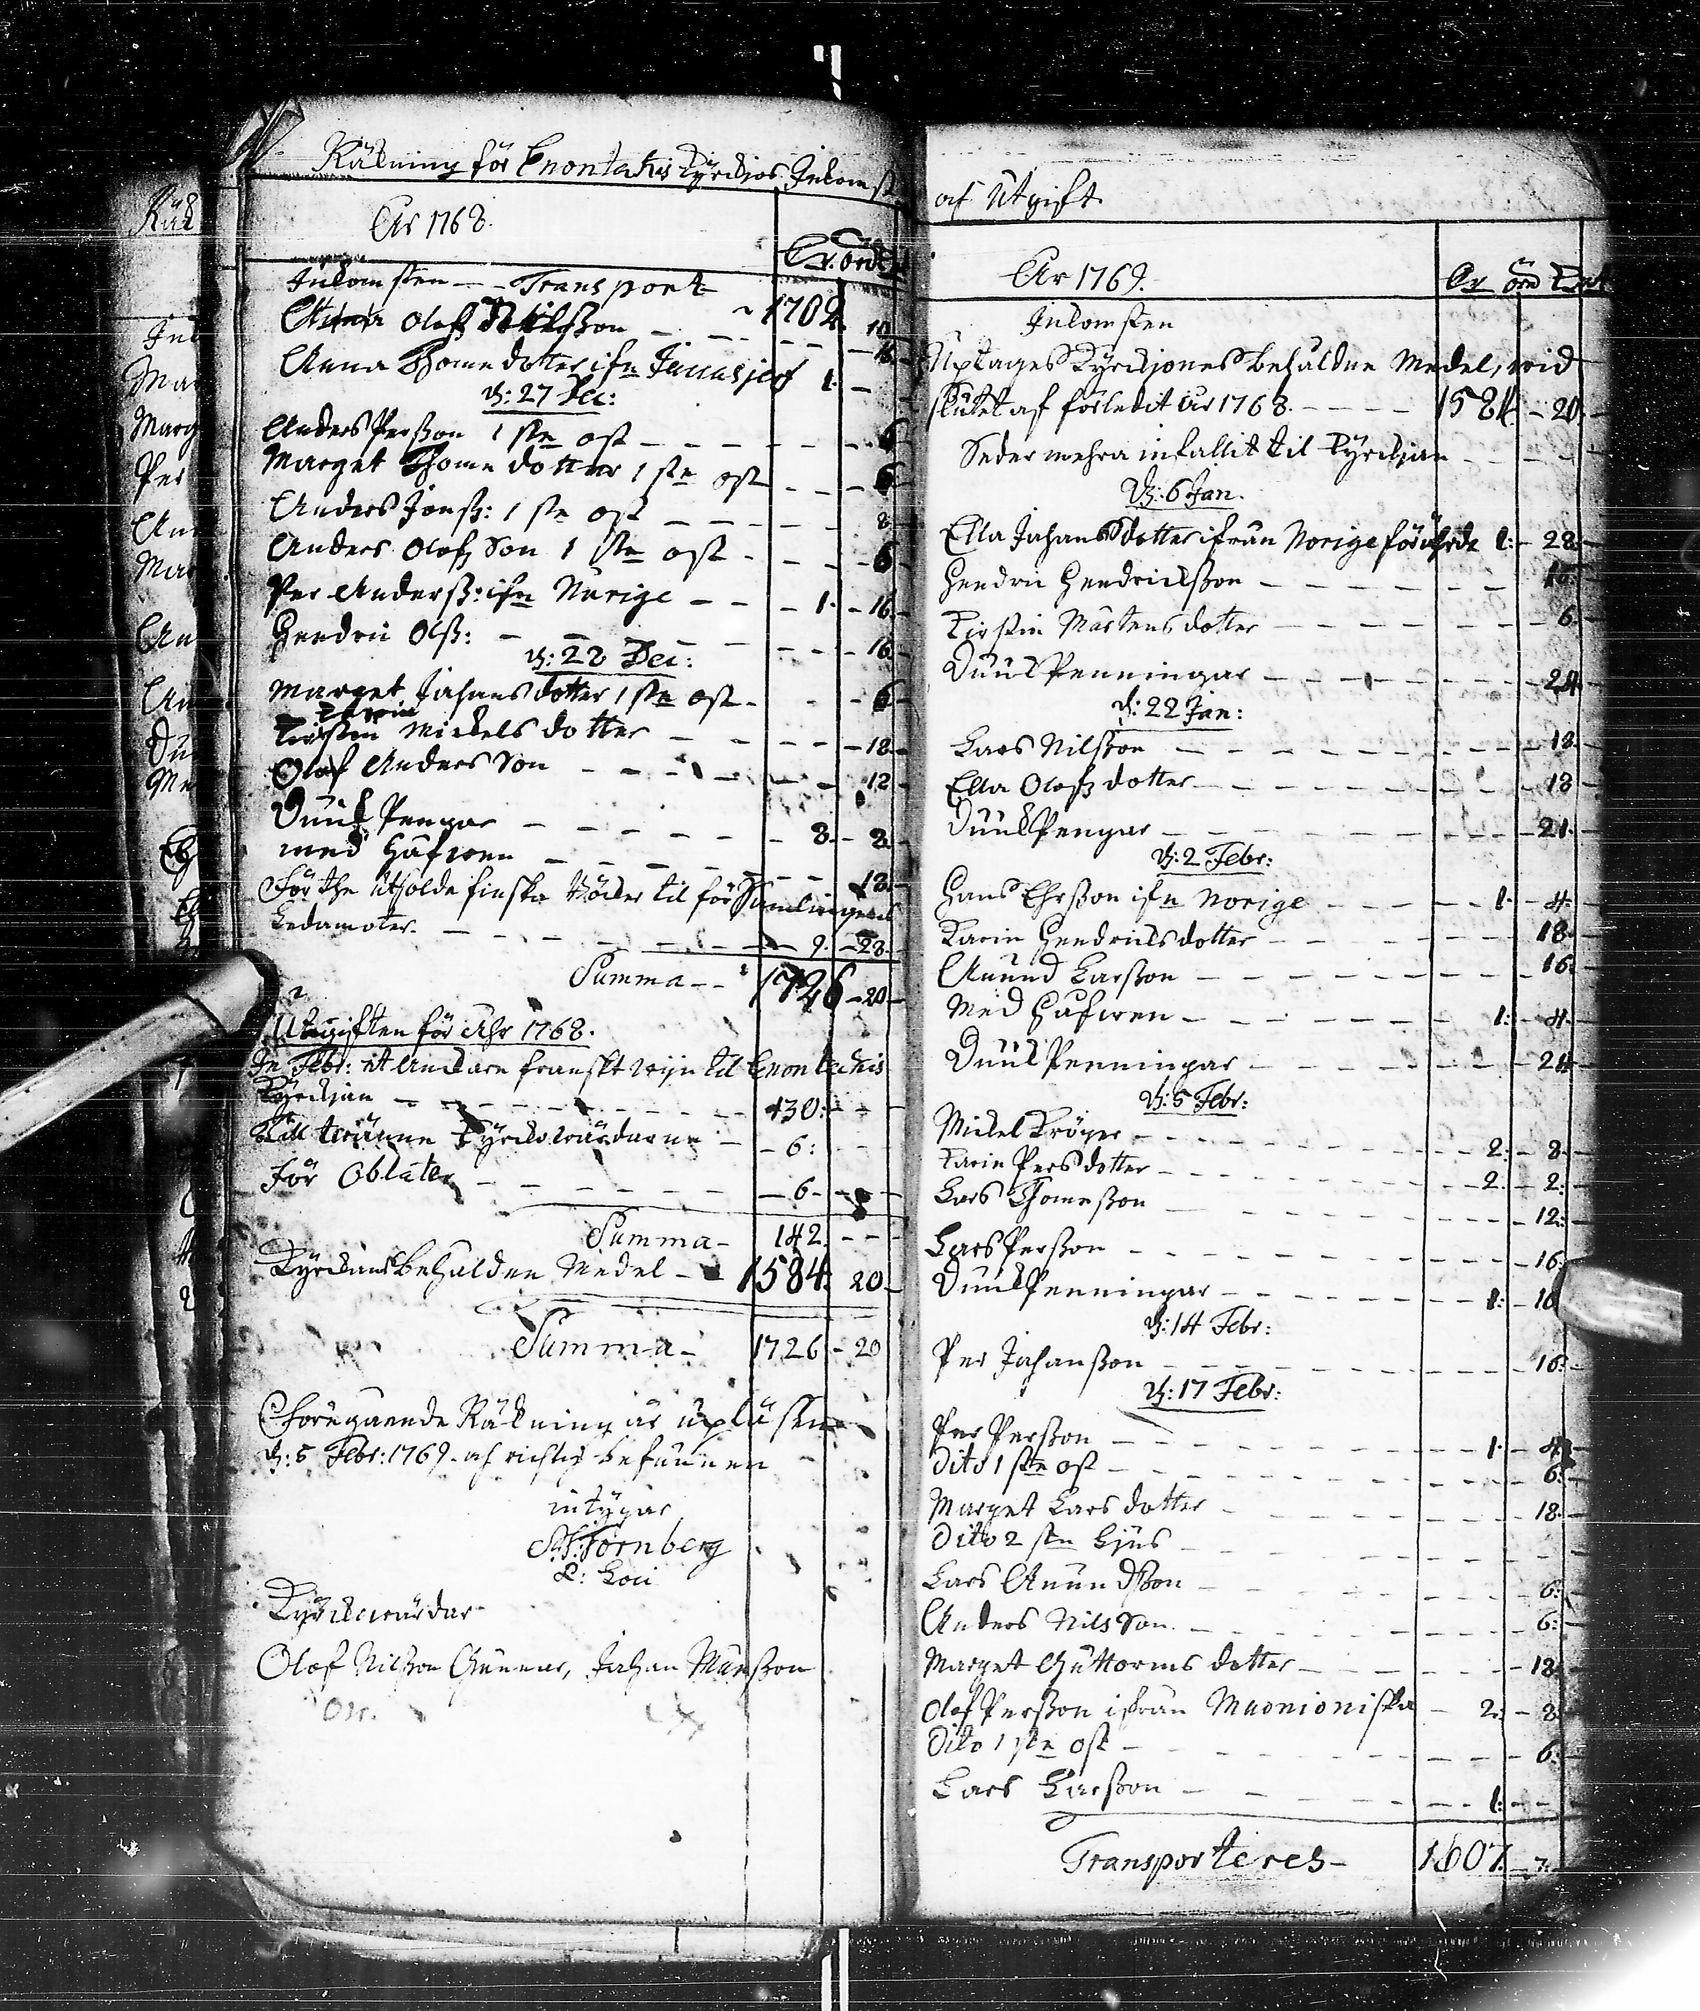 Räkning för Enontekis Kyrckios Inkomst
År 1768.
Inkomsten - - Transport - 1702. 10
Olofsson - - -
Anna Thome dotter ifn Jucasjerf 1. -
d: 27 Dec:
Anders Persson 1 stn ost - - - 6
Marget Thome dotter 1 stn ost - - - 6
Anders Jonss: 1 stn ost - - - 8
Anders Olofs Son 1 stn ost - - - 6
Per Anderss: ifn Norige - - 1. - 16.
Hendric Olss: - - - 16.
d: 28 Dec:
Marget Johans dotter 1 stn ost - - - 6
Karin
Mickels dotter - - - 18.
Olof Anders Son - - - 12
Duuk Pengar - - - 8. - 8.
med Håfwen - - - 18.
För the utsolde finska Böcker til församlingenes
Ledamoter. - - - 9. - 28.
Summa - - 1726 - 20 -
Utgiften för Åhr 1768.
In Febr: et Anckare franskt wijn til Enontekis
Kyrckian - - - 130: - -
Till twänne Kyrckowärdarne - 6: - -
För Oblater - - - 6. - -
Summa - 142. - -
Kyrckans behåldne Medel - - 1584. 20 -
Summa - 1726 - 20
Föregående Räkning är upläsen
d: 5 Febr: 1769. och richtig befunnen
intygar
Fornberg
P: Loci
Kyrckowärdar
Olof Nilsson Gunnar, Johan Månsson
af Utgift.
År 1769.
Inkomsten
Uptages Kyrckjones behåldne Medel, wid
slutet af förledit år 1768. - - - 1584. - 20 -
Seder mehra infallit til Kyrckjan - - -
d: 6 Jan.
Ella Johans dotter ifrån Norige förährde 1: - 28.
Hendric Hendricksson - - - 16.
Kirstin Mårtens dotter - - - 6.
Duuk Penningar - - - 24
d: 22 Jan:
Lars Nilsson - - - 18.
Ella Olofs dotter - - - 18
Duuk Pengar - - - 21.
d: 2 Febr:
Hans Ehrsson ifn Norige - - - 1. - 4.
Karin Hendricks dotter - - - 18.
Anund Larsson - - - 16.
Med Håfwen - - - 1: - 4.
Duuk Penningar - - - 24
d: 5 Febr:
Mickel Kröger - - - 2. - 8.
Karin Pers dotter - - - 2. - 2.
Lars Thomesson - - - 12.
Lars Persson - - - 16.
Duuk Penningar - - - 1: - 10
d: 14 Febr:
Per Johansson - - - 16.
d: 17 Febr:
Per Persson - - - 1. - 4.
Dito 1 stn ost - - - 6.
Marget Lars dotter - - - 18.
Dito 2 stn Ljus - - -
Lars Anundsson - - - 6.
Anders Nils Son - - - 6.
Marget Guttorms dotter - - - 18.
Olof Persson ifrån Muonioniska - 2: - 8.
Dito 1 stn ost - - - 6.
Lars Larsson - - - 1: - -
Transporteres - 1607. - 7.